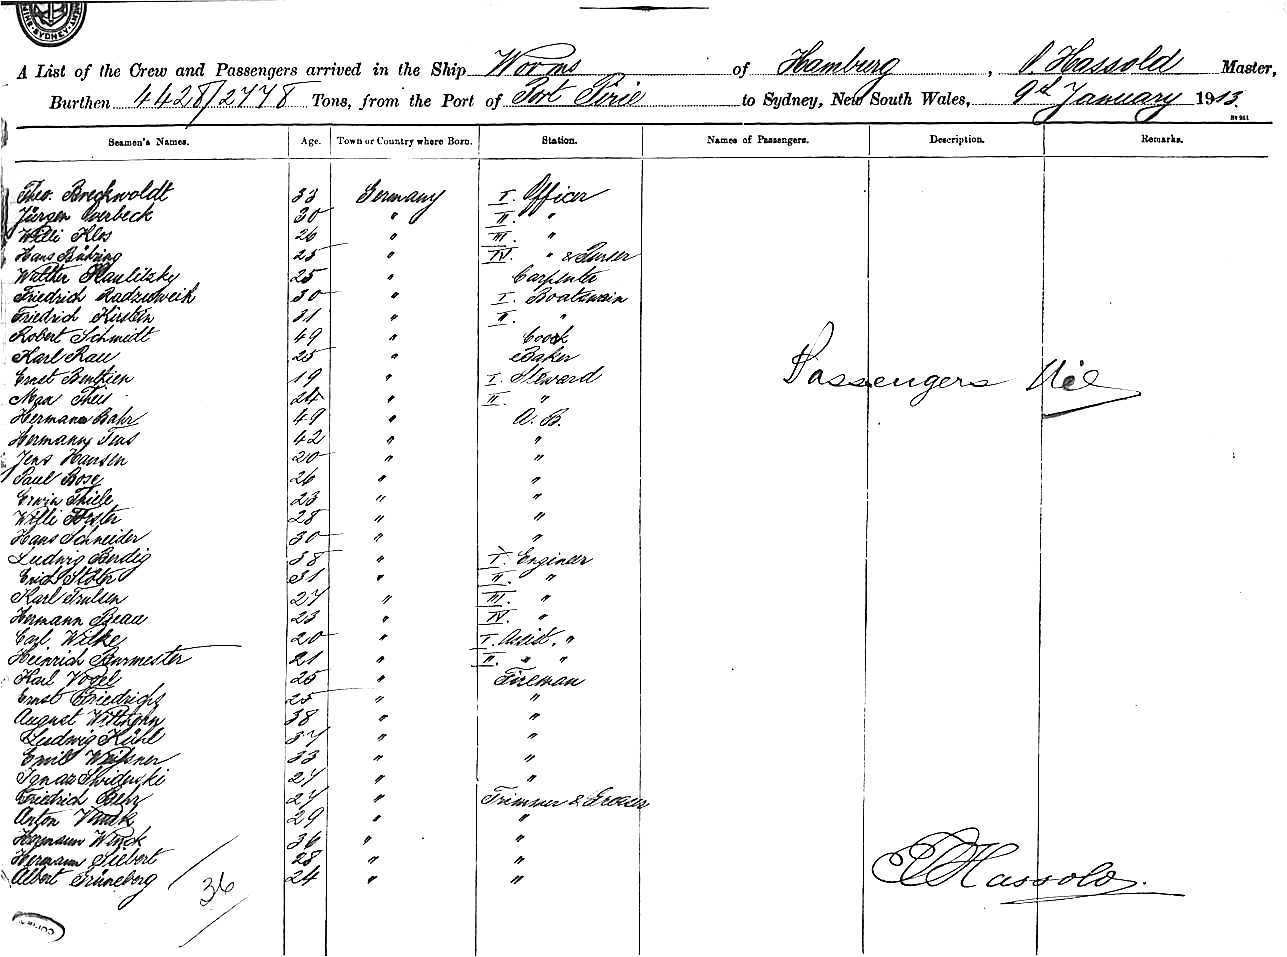 SYDNEY
A List of the Crew and Passengers arrived in the Ship Worms of Hamburg, Hassold Master,
Burthen 4428/2778 Tons, from the Port of Port Pirie to Sydney, New South Wales, 9d January 1913.
Seamen's Names. Age. Town or Country where Born. Station. Names of Passengers. Description. Remarks.
Theo. Breckwoldt 33 Germany I. Officer
Jürgen Overbeck 30 " II. "
Willi Klos 26 " III. "
Hans Bühring 25 " IV. " & Purser
Walther Kaulitzky 25 " Carpenter
Friedrich Radzuweik 30 " I. Boatswain
Friedrich Kirstein 31 " II. "
Robert Schmidt 49 " Cook
Karl Rau 25 " Baker
Ernst Benthien 19 " I. Steward
Passengers Nil
Max Theis 24 " II. "
Hermann Bahr 49 " A. B.
Hermann Tews 42 " "
Jens Hansen 20 " "
Paul Bose 26 " "
Erwin Thiele 23 " "
Willi Förster 28 " "
Hans Schneider 30 " "
Ludwig Berdig 38 " I. Engineer
Erich Stöter 31 " II. "
Karl Trulsen 27 " III. "
Hermann Beau 23 " IV. "
Carl Wilke 20 " I. Assist. "
Heinrich Burmester 21 " II. " "
Karl Vogel 25 " Fireman
Ernst Friedrichs 25 " "
August Witthohn 38 " "
Ludwig Kühl 37 " "
Emil Meissner 33 " "
Ignaz Swiderski 27 " "
Friedrich Behr 27 " Trimmer & Greaser
Anton 29 " "
Hermann Winck 36 " "
Hermann Siebert 28 " "
Albert Grüneberg 24 " "
36
Hassold.